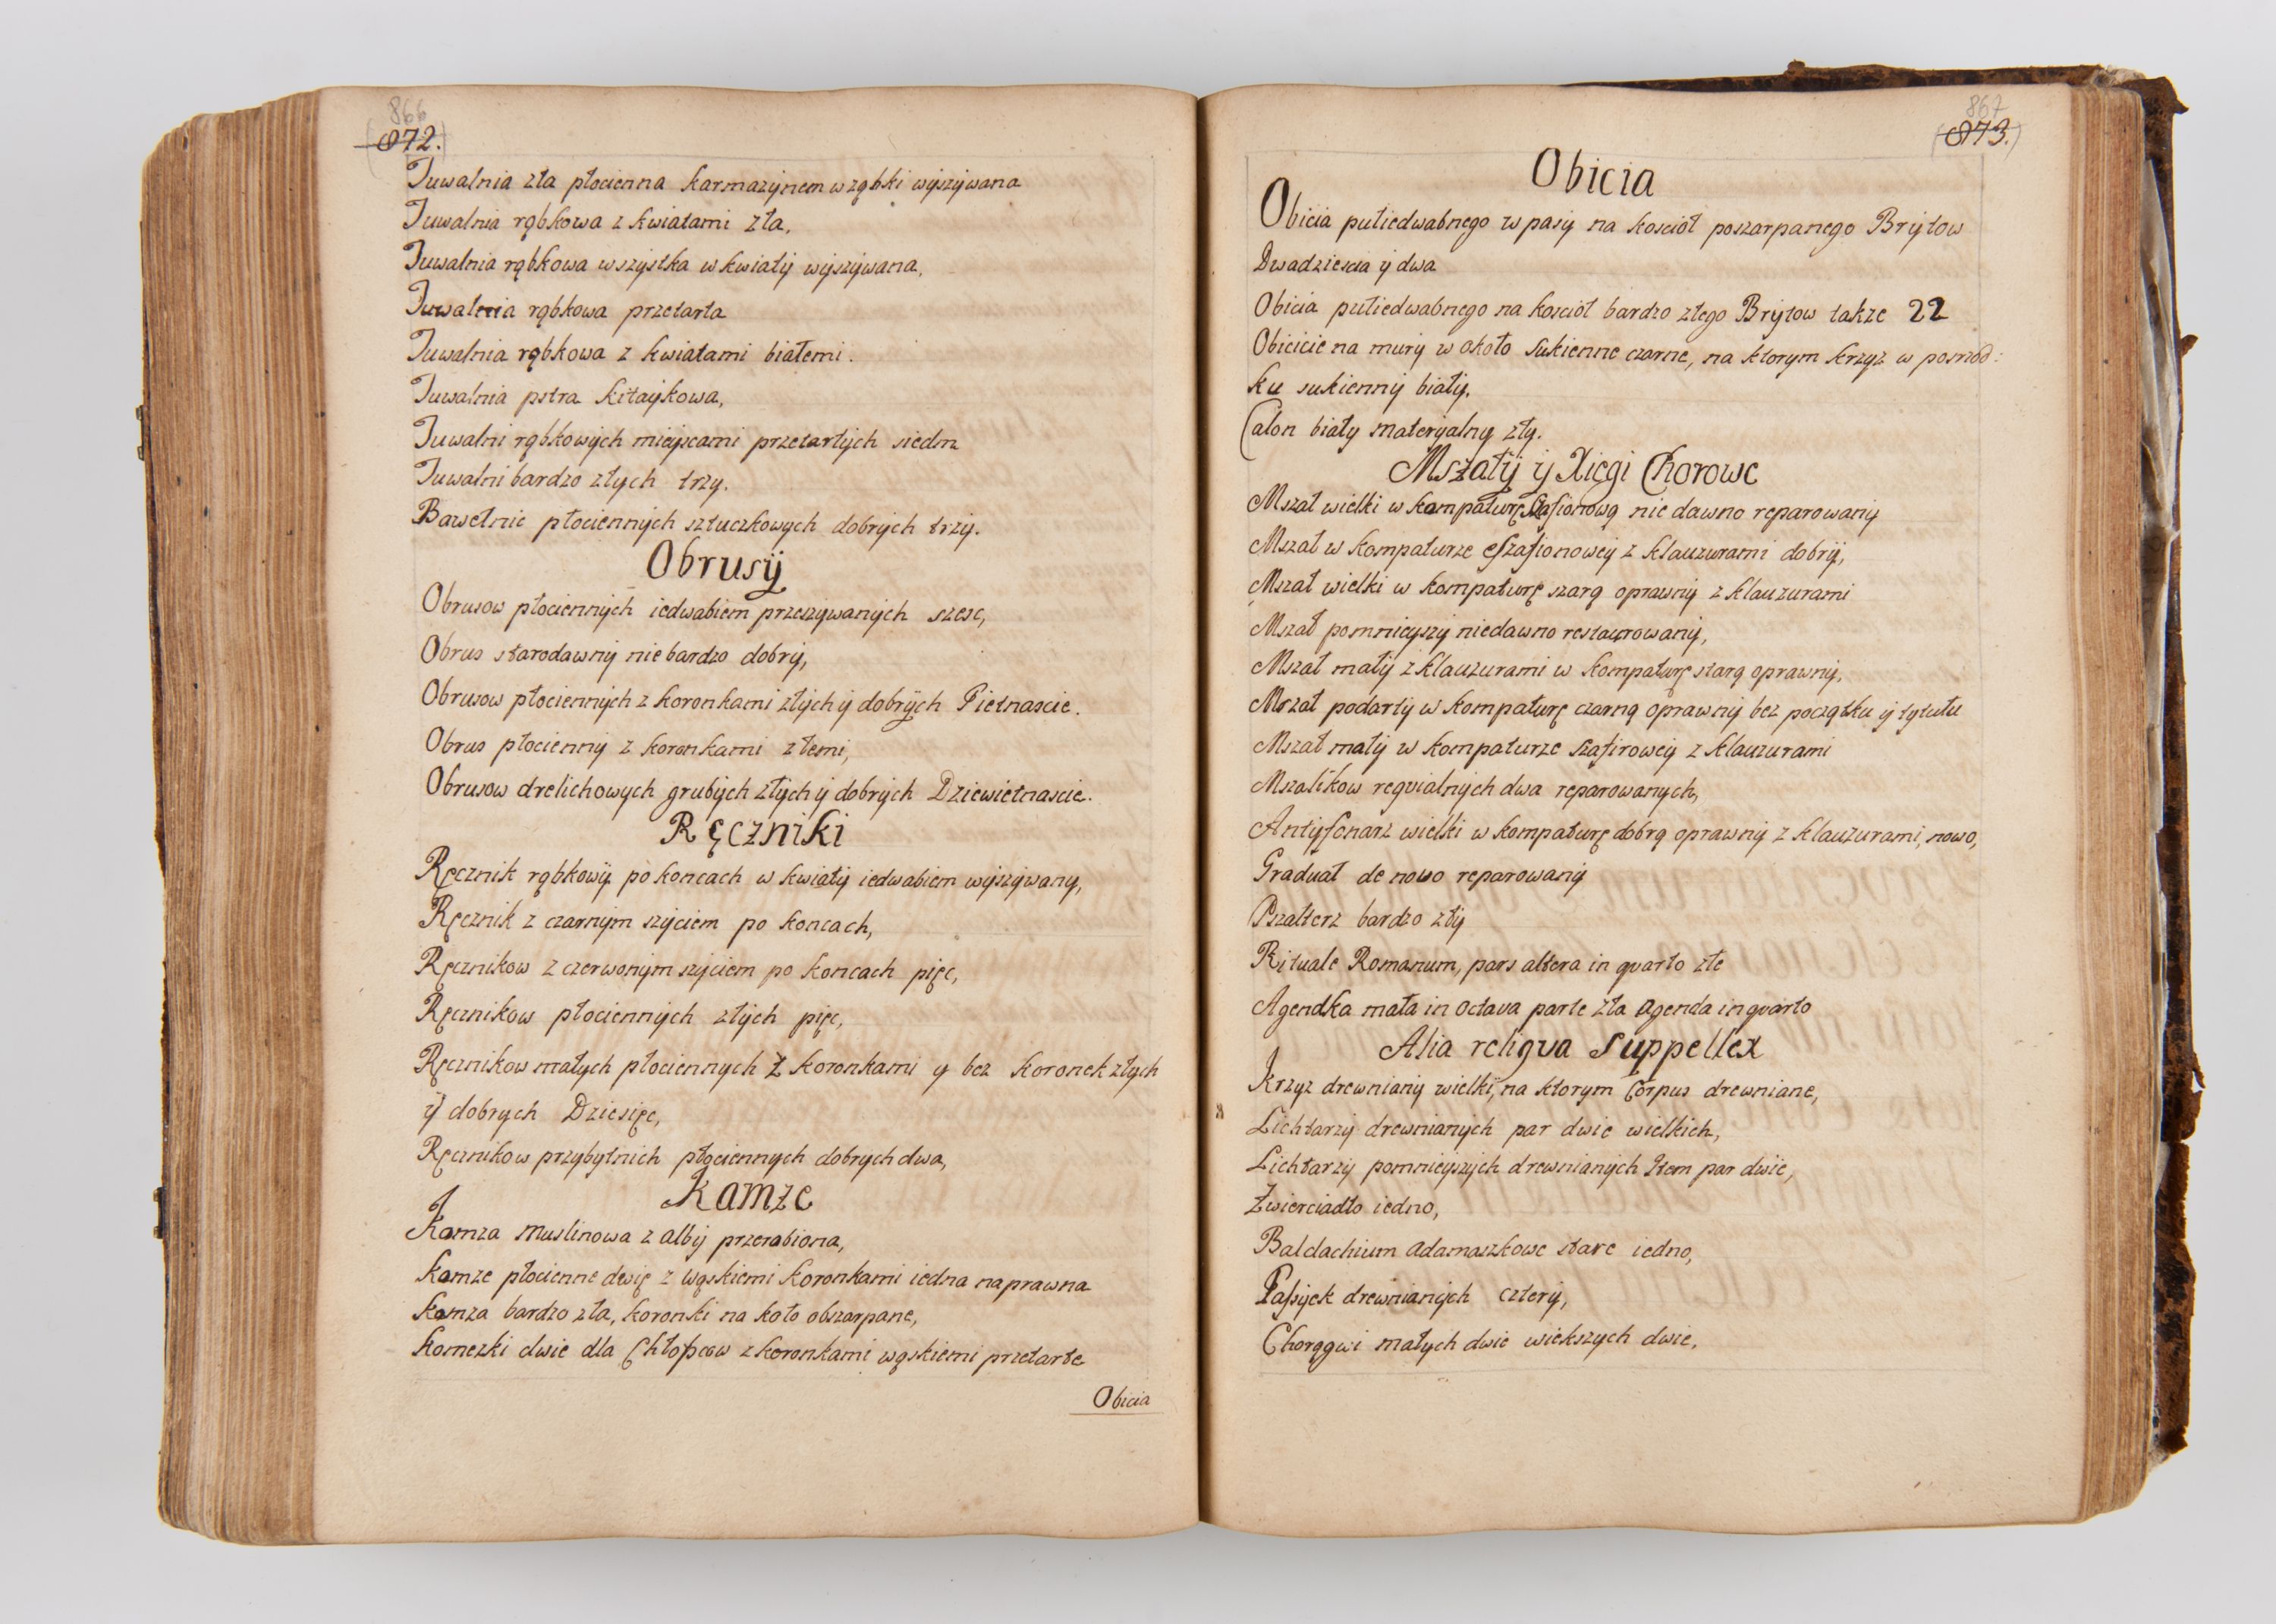 866
872.
Tuwalnia zła płocienna karmazÿnem w ząbki wÿszÿwana
Tuwalnia rąbkowa z kwiatami zła,
Tuwalnia rąbkowa wszystka w kwiatÿ wÿszÿwana,
Tuwalnia rąbkowa przetarta
Tuwalnia rąbkowa z kwiatami białemi.
Tuwalnia pstra kitaÿkowa,
Tuwalni rąbkowÿch mieÿscami przetartÿch siedm
Tuwalni bardzo złych trzy.
Bawełnic płociennÿch sztuczkowych dobrÿch trzÿ.
Obrusÿ
Obrusow płociennÿch iedwabiem przeszÿwanÿch szesc,
Obrus starodawnÿ nie bardzo dobrÿ,
Obrusow płociennÿch z koronkami złÿch ÿ dobrÿch Pietnascie.
Obrus płociennÿ z koronkami złemi,
Obrusow drelichowych grubÿch złÿch ÿ dobrÿch Dziewietnascie.
Ręczniki
Ręcznik rąbkowÿ po koncach w kwiatÿ iedwabiem wÿszÿwany,
Ręcznik z czarnÿm szÿciem po koncach,
Ręcznikow z czerwonÿm szÿciem po koncach pięc,
Ręcznikow płociennÿch złÿch pięc,
Ręcznikow małych płociennych z koronkami y bez koronek złych
ÿ dobrych Dziesięc,
Ręcznikow przybytnich płociennych dobrych dwa,
Kamze
Kamza muslinowa z albÿ przerabiona,
Kamze płocienne dwię z wąskiemi koronkami iedna naprawna
Kamza bardzo zła, koronki na koło obszarpane,
Komezki dwie dla Chłopcow z koronkami wąskiemi przetarte
Obicia
867
873.
Obicia
Obicia pułiedwabnego w pasÿ na kosciół poszarpanego Brÿtow
Dwadziescia ÿ dwa
Obicia pułiedwabnego na kosciół bardzo złego Brÿtow także 22
Obicicie na murÿ w około sukienne czarne, na ktorym krzyż w posrzod:
ku sukiennÿ białÿ.
Calon biały materÿalny zły.
Mszałÿ ÿ Xięgi Chorowe
Mszał wielki w kompaturę Safionową nie dawno reparowanÿ
Mszał w kompaturze Szafionoweÿ z klauzurami dobrÿ,
Mszał wielki w kompaturę szarą oprawnÿ z klauzurami
Mszał pomnieÿszÿ niedawno restaurowanÿ,
Mszał małÿ z klauzurami w kompaturę starą oprawnÿ,
Mszał podartÿ w kompaturę czarną oprawnÿ bez początku ÿ tytułu
Mszał małÿ w kompaturze szafiroweÿ z klauzurami
Mszalikow reqvialnÿch dwa reparowanÿch,
Antÿfonarz wielki w kompaturę dobrą oprawnÿ z klauzurami, nowo,
Graduał de nowo reparowanÿ
Pszałterz bardzo złÿ
Rituale Romanum, pars altera in qvarto złe
Agendka mała in octava parte zła Agenda in qvarto
Alia reliqva Suppellex
Krzyz drewnianÿ wielki, na ktorym Corpus drewniane,
Lichtarzÿ drewnianÿch par dwie wielkich,
Lichtarzÿ pomnieÿszÿch drewnianÿch Item par dwie,
Zwierciadło iedno,
Baldachium adamaszkowe stare iedno,
Pasÿjek drewnianÿch czterÿ,
Chorągwi małych dwie wiekszych dwie,